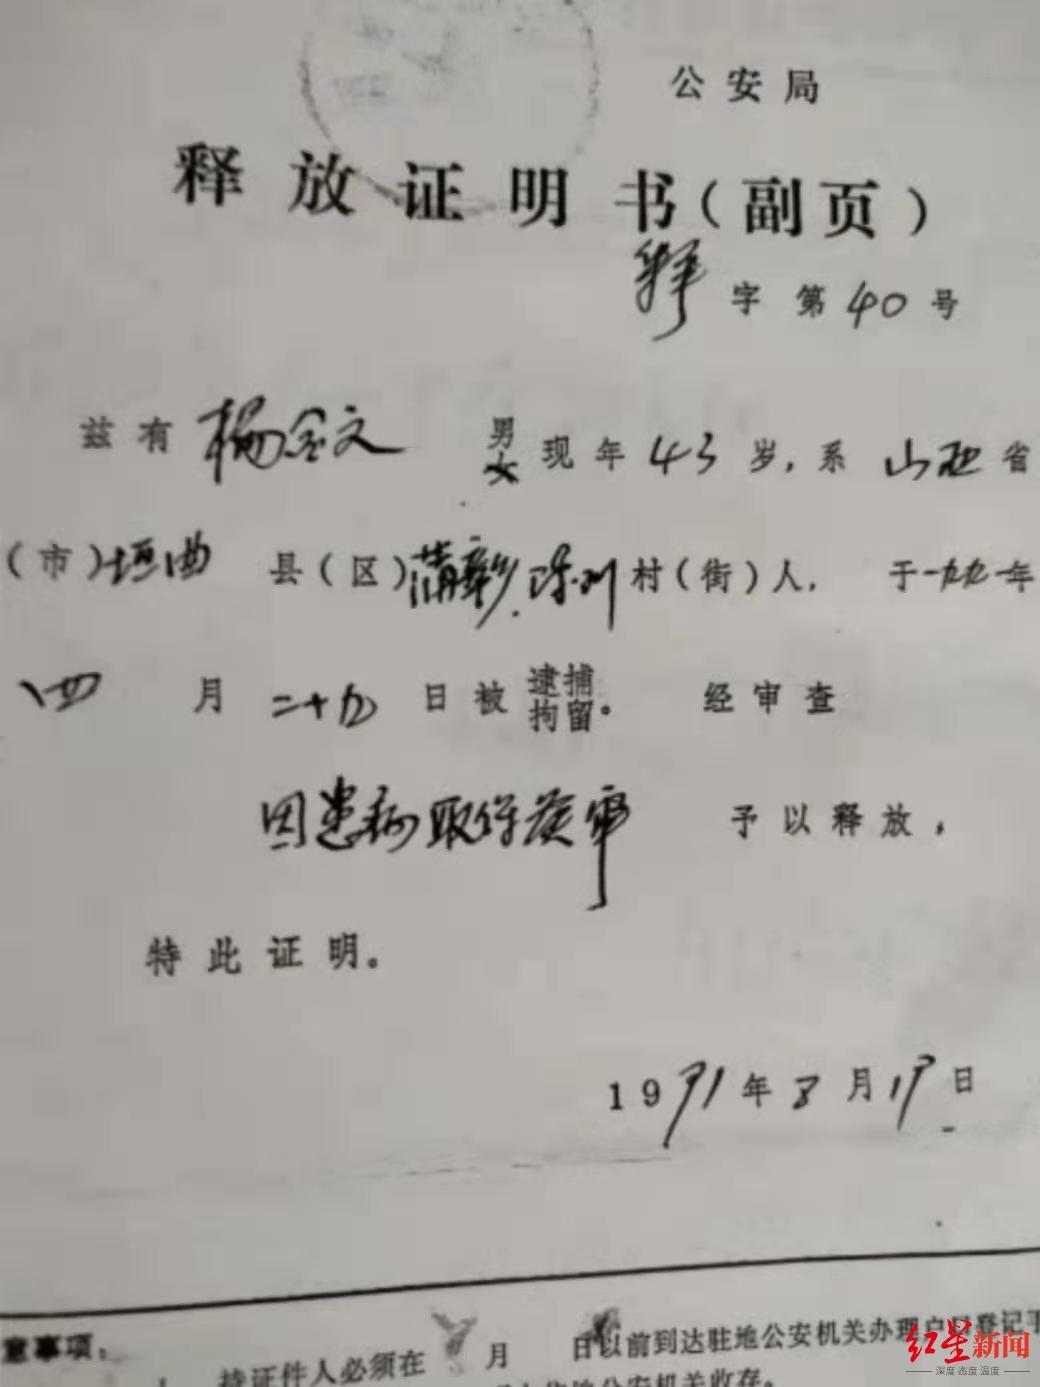 公安局
释放证明书(副页)
释字第40号
兹有杨金文 男女现年43岁,系山西省
(市)垣曲县(区)蒲掌乡陈川村(街)人,于一九九一年
四月二十九日被逮捕拘留。经审查
因患病取保候审予以释放,
特此证明。
1991年8月19日
意事项:
持证件人必须在 月 日以前到达驻地公安机关办理户口登记
公安机关收存。
红星新闻
深度 态度 温度